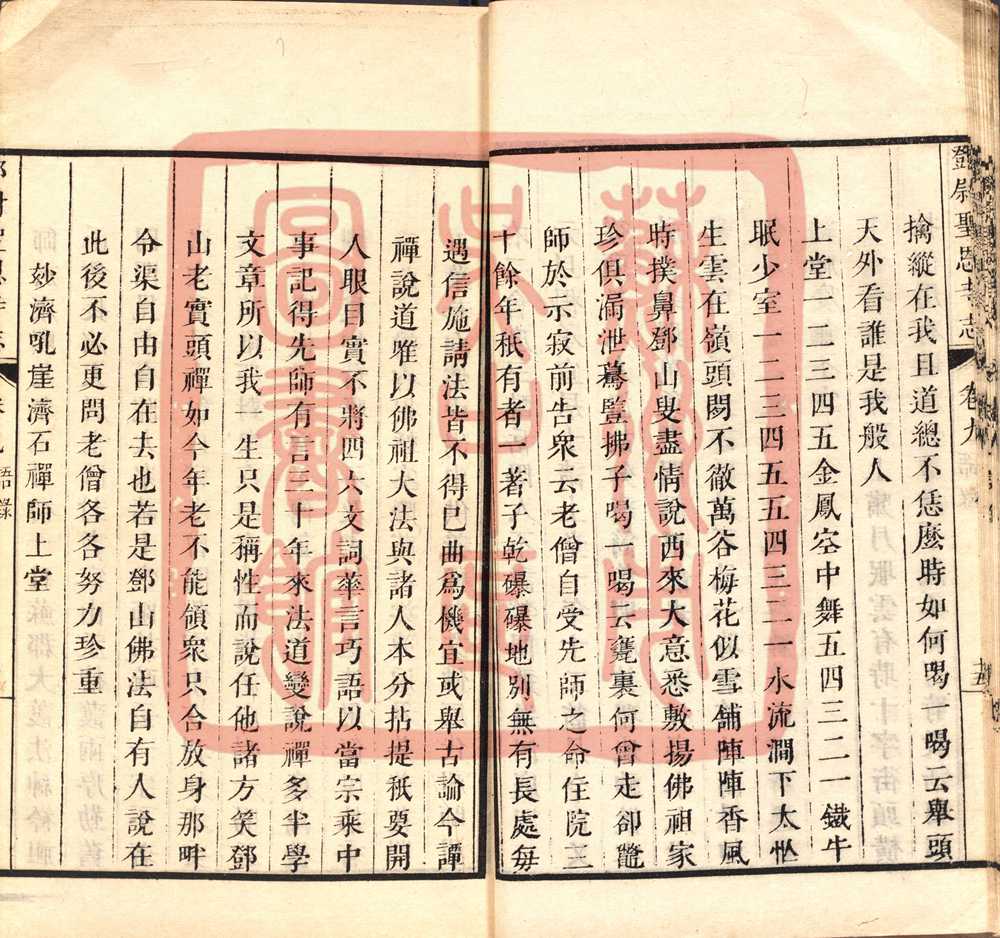 鄧尉聖恩寺志
卷九
十五
擒縱在我且道總不恁麼時如何喝一喝云舉頭
天外看誰是我般人
上堂一二三四五金鳳空中舞五四三二一鐵牛
眠少室一二三四五五四三二一水流澗下太忙
生雲在嶺頭閟不徹萬谷梅花似雪舖陣陣香風
時撲鼻鄧山叟盡情說西來大意悉敷揚佛祖家
珍俱漏泄驀豎拂子喝一喝云甕裏何曾走卻鼈
師於示寂前告衆云老僧自受先師之命住院三
十餘年秖有者一著子乾曝曝地別無有長處每
遇信施請法皆不得已曲爲機宜或舉古論今譚
禪說道唯以佛祖大法與諸人本分拈提秖要開
人眼目實不將四六文詞華言巧語以當宗乘中
事記得先師有言三十年來法道變說禪多半學
文章所以我一生只是稱性而說任他諸方笑鄧
山老實頭禪如今年老不能領衆只合放身那畔
令渠自由自在去也若是鄧山佛法自有人說在
此後不必更問老僧各各努力珍重
玅濟吼崖濟石禪師上堂
語錄